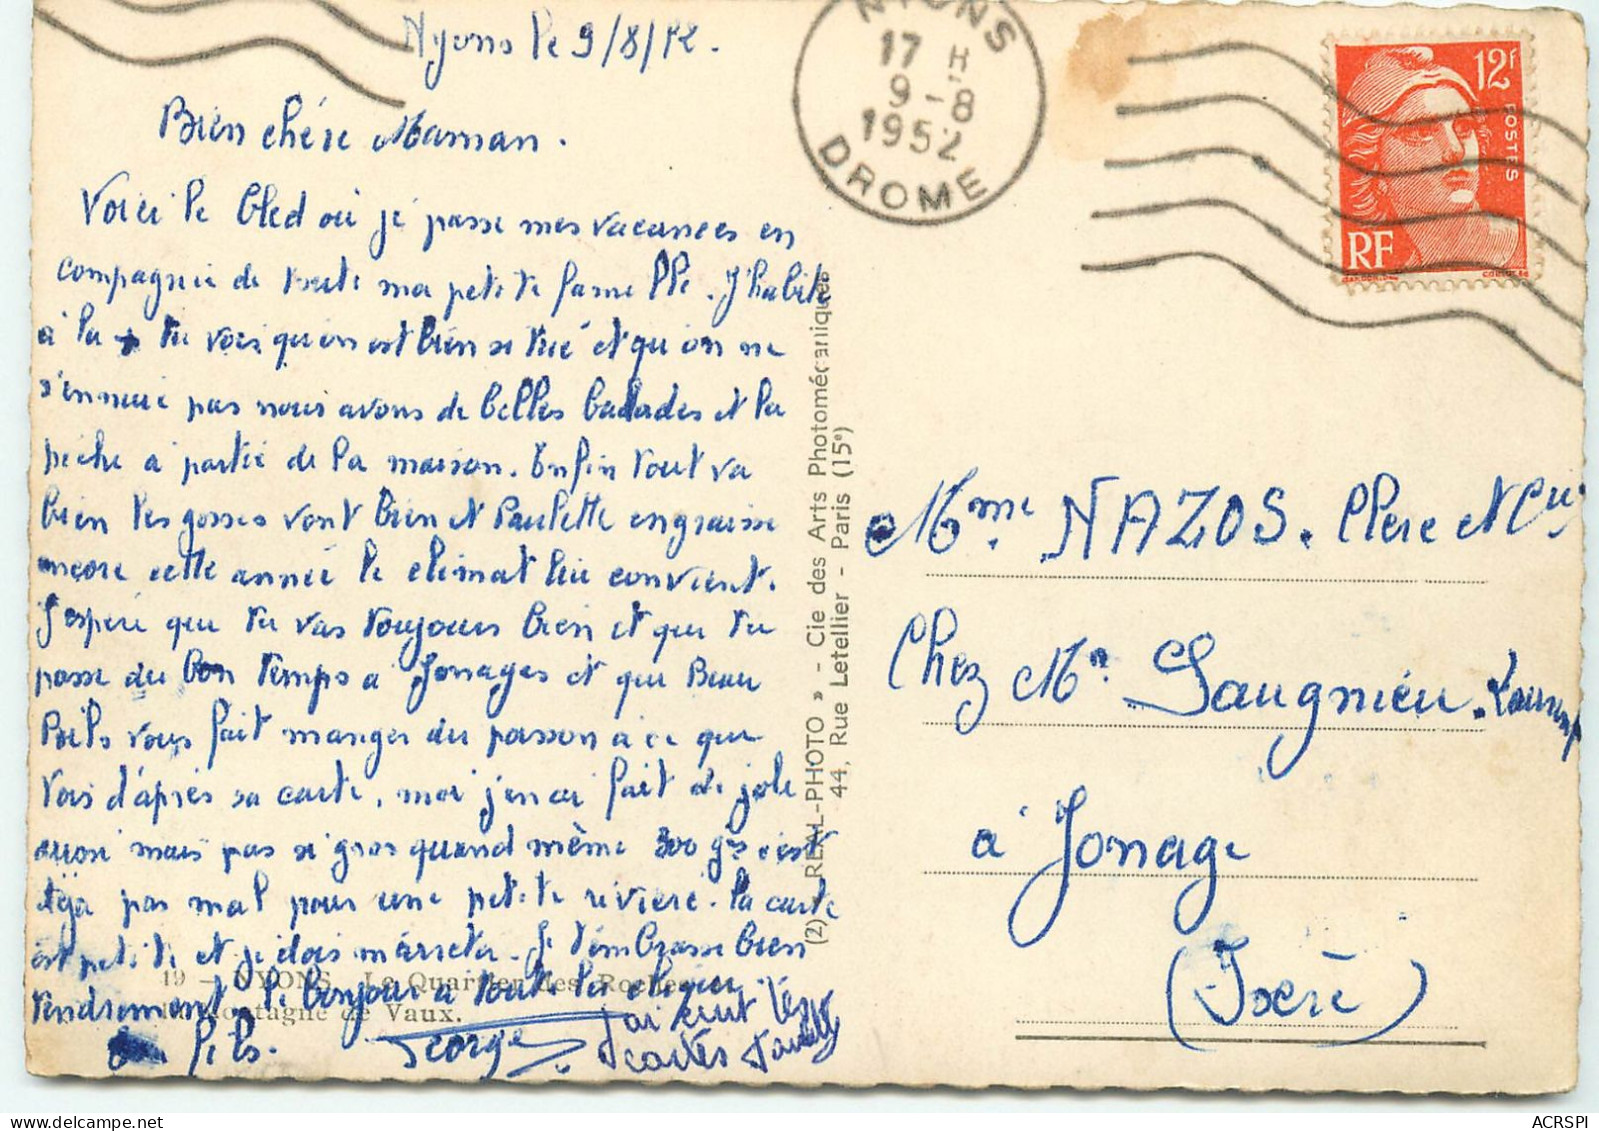 Nyons le 9/8/52.
Bien chére Maman.
Voici le bled où je passe mes vacances en
compagnie de toute ma petite famille. J'habite
à la + tu vois qu'on est bien situé et qu'on ne
s'ennuie pas nous avons de belles balades et la
pêche à partie de la maison. Enfin tout va
bien les gosses vont bien et Paulette engraisse
encore cette année le climat lui convient.
J'espére que tu vas toujours bien et que tu
passe du bon temps a Jonages et que Beau
Fils vous fait manger du poisson a ce que
vois d'aprés sa carte, moi j'en ai fait de jolie
aussi mais pas si gros quand même 300 grs c'est
déja pas mal pour une petite rivière. la carte
est petite et je dois m'arreter. Je t'embrasse bien
tendrement, le bonjour a toute la
fils. Georges J'ai reçut les
cartes
NYONS
17 H
9-8
1952
DROME
12F
POSTES
RF
GANDON
Mme NAZOS. Place et
Chez Mr Saugnieu.
à Jonage
(Isère)
(2) « REAL-PHOTO » - Cie des Arts Photomécaniques
44, Rue Letellier - Paris (15e)
19 - NYONS. Le Quartier des Roches
Montagne de Vaux.
ACRSPI